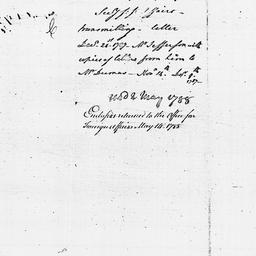 transmitting - letter
Decr. 21. 1787. Mr Jefferson with
copies of letters from him to
Mr Dumas - Novr 14. Decr 9th
1787.
read 2 May 1788
Enclosures returned to the Office for
Foreign Affairs May 14. 1788